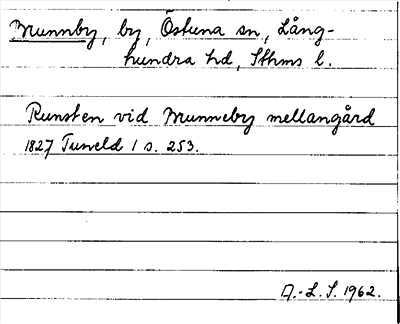 Munnby, by, Östuna sn, Lång-
hundra hd, Sthms l.
Runsten vid Munneby mellangård
1827 Tuneld 1 s. 253.
A.-L. S. 1962.